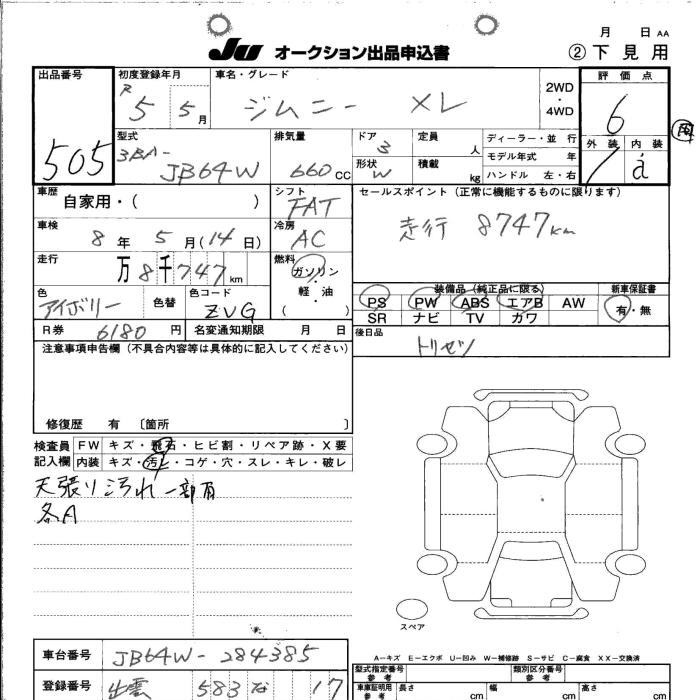 月 日 AA
JU オークション出品申込書 ② 下見用
出品番号 初度登録年月 車名・グレード 2WD・4WD 評価点
505 R5 5月 ジムニー XL 6
型式 排気量 ドア 定員 人 ディーラー・並行 外装 内装
3BA-JB64W 660cc 3 形状 W 積載 kg モデル年式 年
ハンドル 左・右
車歴 自家用・( ) シフト FAT セールスポイント (正常に機能するものに限ります)
車検 8年 5月(14日) 冷房 AC 走行 8747km
走行 万8千747km 燃料 ガソリン・軽・油 ( )
装備品 (純正品に限る) 新車保証書
色 アイボリー 色替 色コード ZVG PS PW ABS エアB AW 有・無
SR ナビ TV カワ
R券 6180円 名変通知期限 月 日 後日品
トリセツ
注意事項申告欄(不具合内容等は具体的に記入してください)
修復歴 有 〔箇所 〕
検査員 FW キズ・飛石・ヒビ割・リペア跡・X要
記入欄 内装 キズ・汚レ・コゲ・穴・スレ・キレ・破レ
天張り汚れ一部有
各A
スペア
A－キズ E－エクボ U－凹み W－補修跡 S－サビ C－腐食 XX－交換済
車台番号 JB64W-284385 型式指定番号 参考 類別区分番号 参考
登録番号 出雲 583 な 17 車庫証明用 参考 長さ cm 幅 cm 高さ cm